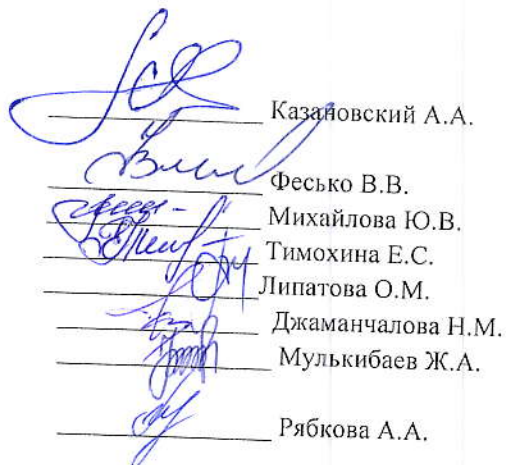 Казановский А.А.
Фесько В.В.
Михайлова Ю.В.
Тимохина Е.С.
Липатова О.М.
Джаманчалова Н.М.
Мулькибаев Ж.А.
Рябкова А.А.